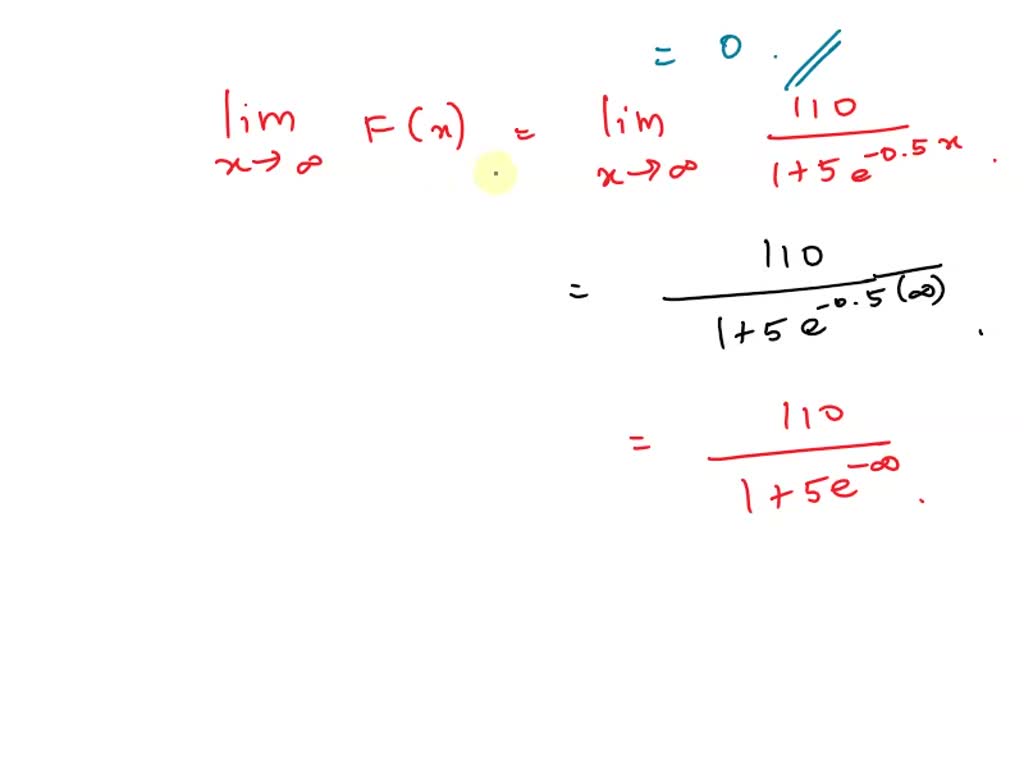 = 0.
lim x→∞ F(x) = lim x→∞ 110 / 1+5e^-0.5x .
= 110 / 1+5e^-0.5(∞) .
= 110 / 1+5e^-∞ .